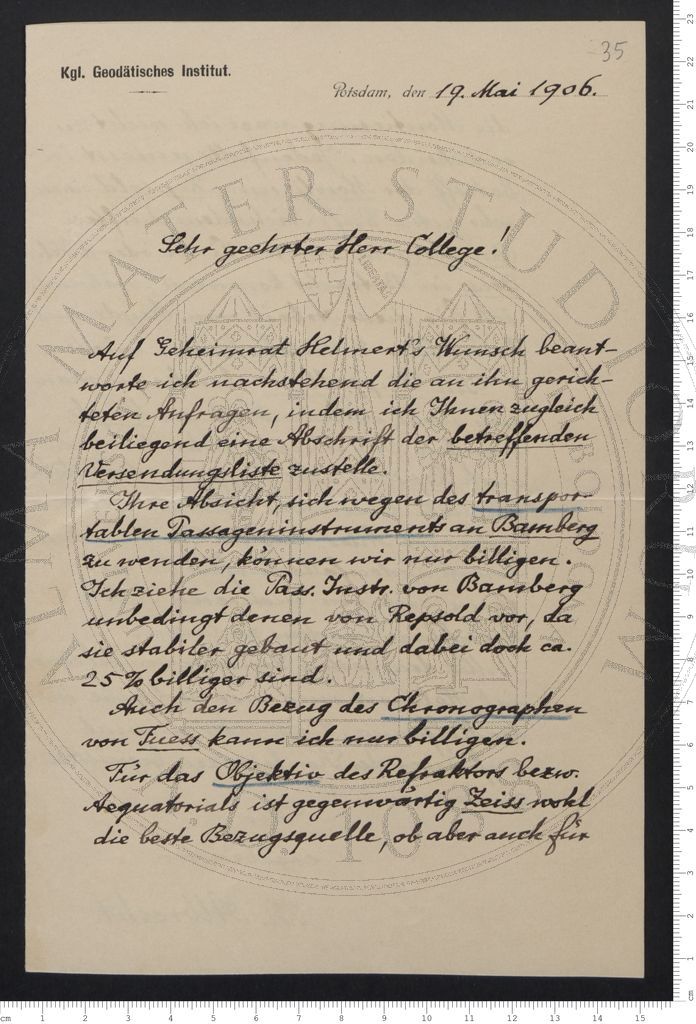 35
Kgl. Geodätisches Institut.
Potsdam, den 19. Mai 1906.
Sehr geehrter Herr College!
Auf Geheimrat Helmert's Wunsch beant-
worte ich nachstehend die an ihn gerich-
teten Anfragen, indem ich Ihnen zugleich
beiliegend eine Abschrift der betreffenden
Versendungsliste zustelle.
Ihre Absicht, sich wegen des transpor-
tablen Passageninstruments an Bamberg
zu wenden, können wir nur billigen.
Ich ziehe die Pass. Instr. von Bamberg
unbedingt denen von Repsold vor, da
sie stabiler gebaut und dabei doch ca.
25% billiger sind.
Auch den Bezug des Chronographen
von Fuess kann ich nur billigen.
Für das Objektiv des Refraktors bezw.
Aequatorials ist gegenwärtig Zeiss wohl
die beste Bezugsquelle, ob aber auch für